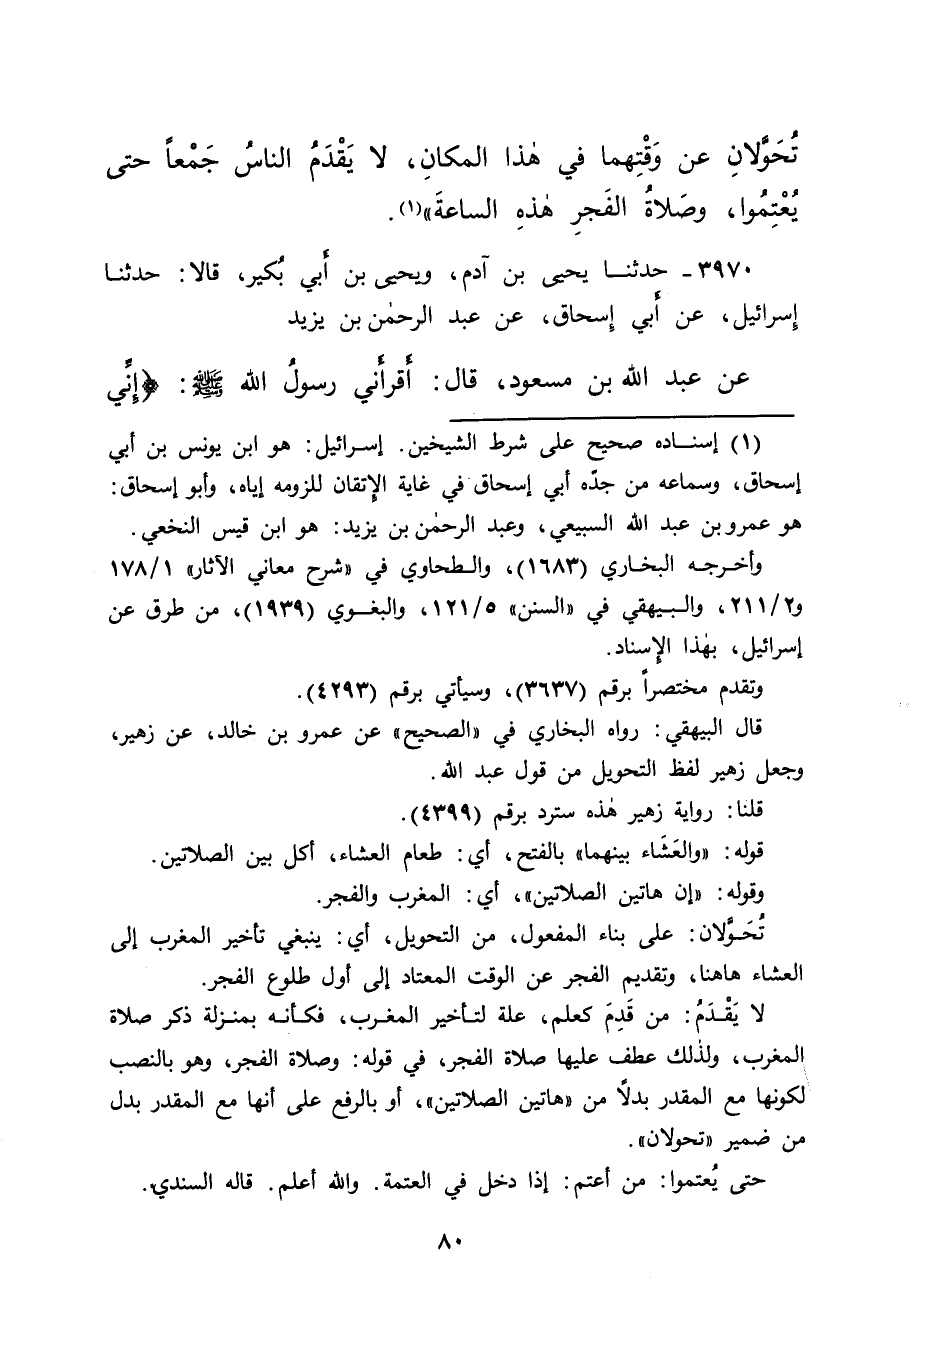 تُحَوَّلانِ عن وَقْتِهما في هٰذا المكانِ، لا يَقْدَمُ الناسُ جَمْعاً حتى
يُعْتِمُوا، وصَلاةُ الفَجرِ هٰذهِ الساعةَ»(١).
٣٩٧٠ـ حدثنا يحيى بن آدم، ويحيى بن أَبي بُكير، قالا: حدثنا
إسرائيل، عن أَبي إسحاق، عن عبد الرحمٰن بن يزيد
عن عبد الله بن مسعود، قال: أَقرأَني رسولُ الله ﷺ: ﴿إِنِّي
(١) إسناده صحيح على شرط الشيخين. إسرائيل: هو ابن يونس بن أبي
إسحاق، وسماعه من جدّه أبي إسحاق في غاية الإتقان للزومه إياه، وأبو إسحاق:
هو عمرو بن عبد الله السبيعي، وعبد الرحمٰن بن يزيد: هو ابن قيس النخعي.
وأخرجه البخاري (١٦٨٣)، والطحاوي في «شرح معاني الآثار» ١٧٨/١
و٢١١/٢، والبيهقي في «السنن» ١٢١/٥، والبغوي (١٩٣٩)، من طرق عن
إسرائيل، بهٰذا الإسناد.
وتقدم مختصراً برقم (٣٦٣٧)، وسيأتي برقم (٤٢٩٣).
قال البيهقي: رواه البخاري في «الصحيح» عن عمرو بن خالد، عن زهير،
وجعل زهير لفظ التحويل من قول عبد الله.
قلنا: رواية زهير هٰذه سترد برقم (٤٣٩٩).
قوله: «والعَشَاء بينهما» بالفتح، أي: طعام العشاء، أكل بين الصلاتين.
وقوله: «إن هاتين الصلاتين»، أي: المغرب والفجر.
تُحَوَّلان: على بناء المفعول، من التحويل، أي: ينبغي تأخير المغرب إلى
العشاء هاهنا، وتقديم الفجر عن الوقت المعتاد إلى أول طلوع الفجر.
لا يَقْدَمُ: من قَدِمَ كعلم، علة لتأخير المغرب، فكأنه بمنزلة ذكر صلاة
المغرب، ولذٰلك عطف عليها صلاة الفجر، في قوله: وصلاة الفجر، وهو بالنصب
لكونها مع المقدر بدلاً من «هاتين الصلاتين»، أو بالرفع على أنها مع المقدر بدل
من ضمير «تحولان».
حتى يُعتموا: من أعتم: إذا دخل في العتمة. والله أعلم. قاله السندي.
٨٠